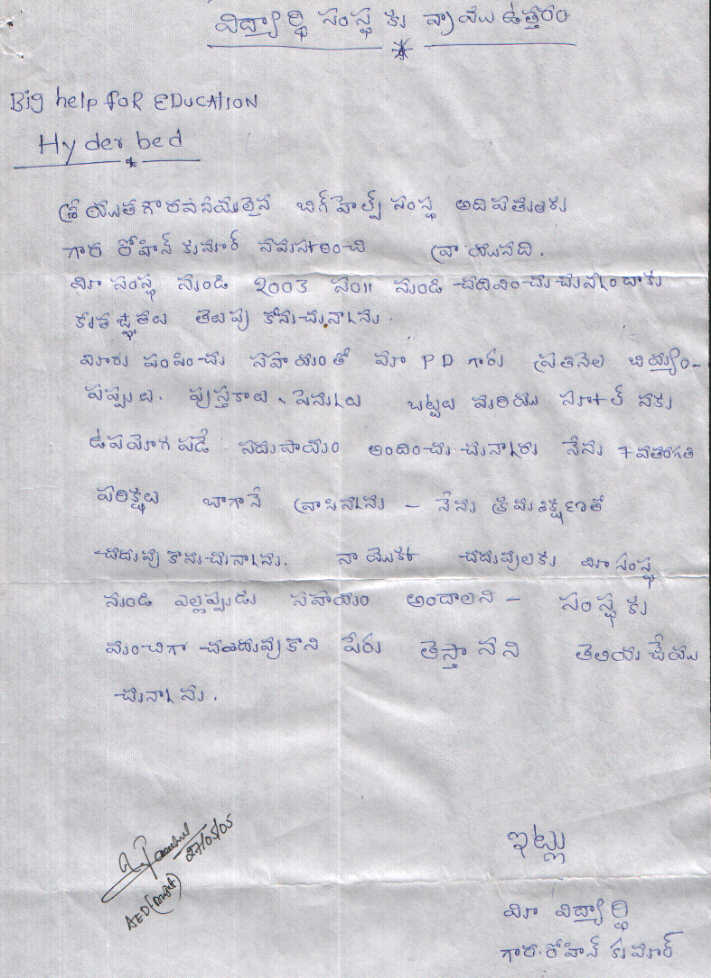 విద్యార్థి సంస్థ కు వ్రాయు ఉత్తరం
Big help foR EDUCATION
Hyder bed
శ్రీ యుత గౌరవనీయులైన బిగ్ హెల్ప్ సంస్థ అది పతులకు
గార రోహిన్ కుమార్ నమస్కరించి వ్రా యునది.
మీ సంస్థ నుండి 2003 సం॥ నుండి చదివించు చున్నందుకు
కృత జ్ఞతలు తెలుపు కొనుచున్నాను.
మీరు పంపించు సహాయంతో మా PD గారు ప్రతినెల బియ్యం-
పప్పులు, పుస్తకాలు, పెన్నులు బట్టలు మరియు స్కూల్ నకు
ఉపయోగ పడే సదుపాయం అందించు చున్నారు నేను 7వతరగతి
పరిక్షలు బాగానే వ్రాసినాను - నేను క్రమశిక్షణతో
చదువు కొనుచున్నాను. నా యొక్క చదువులకు మీ సంస్థ
నుండి ఎల్లప్పుడు సహాయం అందాలని - సంస్థ కు
మంచిగా చదువుకొని పేరు తెస్తా నని తెలియ చేయు
చున్నాను.
27/05/05
ఇట్లు
మీ విద్యార్థి
గార. రోహిన్ కుమార్